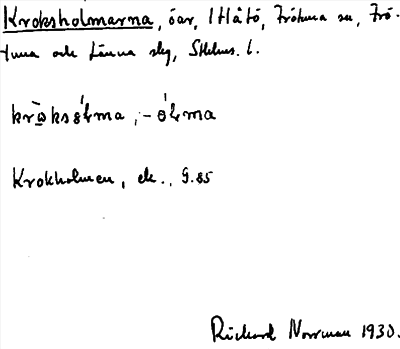 Kroksholmarna, öar, Håtö, Frötuna sn, Frö-
tuna och Länna skg, Sthlms. l.
Krokholmen, ek., G. 85
Richard Norrman 1930.